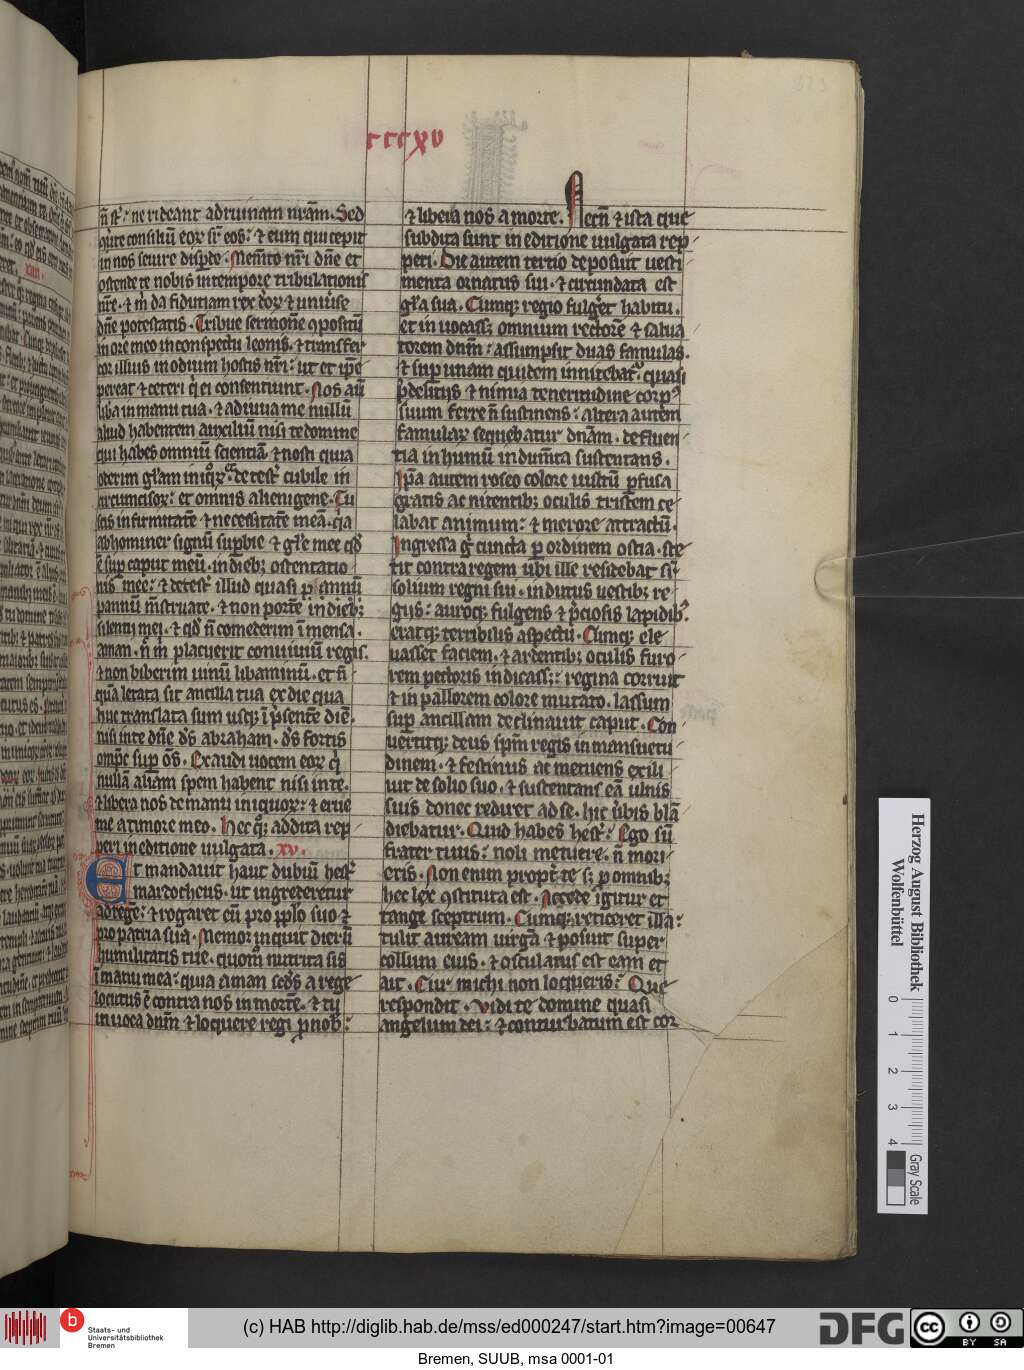 ccccxv
n̄ st̄. ne rideant ad ruinam nr̄am. Sed
ꝯu̇te consiliū eoꝝ sr̄ eos: ⁊ eum qui cepit
in nos seuire disp̄de. Mem̄to nr̄i dn̄e et
ostende te nobis in tempore tribulationis
nr̄e. ⁊ m̄ da fiduciam rex d̓oꝝ ⁊ uniu̓se
dn̄e potestatis. Tribue sermon̄e ꝯpositū
in ore meo in conspectu leonis. ⁊ transfer
cor illius in odium hostis nr̄i: ut et ip̄e
pereat ⁊ ceteri q̇ ei consentiunt. Nos aū
lib̓a in manu tua. ⁊ adiuua me nullū
aliud habentem auxiliū nisi te domine
qui habes omniū scientiā ⁊ nosti quia
oderim gl̄am iniqꝝ. ⁊ detest̓ cubile in
circumcisoꝝ: et omnis alienigene. Tu
scis infirmitatē ⁊ necessitatē meā. q̇a
abhominer signū sup̱bie ⁊ gl̄e mee qd̓
ē sup̱ caput meū. in dieb; ostentatio
nis mee: ⁊ detest̓ illud quasi pannū
pannū m̄struate. ⁊ non portē in dieb;
silentij mei. ⁊ qd̓ n̄ comederim ī mensa.
aman. n̄ m̄ placuerit conuiuiū regis.
⁊ non biberim uinū libaminū. et n̄
quā letata sit ancilla tua ex die qua
huc translata sum usq; ī p̓sentē diē.
nisi in te dn̄e d̓s abraham. d̓s fortis
omp̄e sup̱ o̓s. Exaudi uocem eoꝝ q̇
nullā aliam spem habent nisi in te.
⁊ libera nos de manu iniquoꝝ: ⁊ erue
me a timore meo. Hec q̊; addita rep
peri in editione uulgata. xv.
Et mandauit haut dubiū hest̓
mardocheus. ut ingrederetur
ad regē: ⁊ rogaret eū pro pp̄lo suo ⁊
pro patria sua. Memor inquit dierū
humilitatis tue. quom̊ nutrita sis
ī manu mea: quia aman sc̄d̓s a rege
locutus ē contra nos in mortē. ⁊ tu
inuoca dnm̄ ⁊ loquere regi p̱ nob̓:
⁊ libera nos a morte. Necn̄ ⁊ ista que
subdita sunt in editione uulgata rep
peri. Die autem tertio deposuit uesti
menta ornatus sui. ⁊ circumdata est
gl̄a sua. Cumq; regio fulg̓et habitu.
et inuocass; omnium rectorē ⁊ salua
torem dnm̄: assumpsit duas famulas.
⁊ sup̱ unam quidem innitebat̓. quasi
p̓ delitijs ⁊ nimia teneritudine corp̓
suum ferre n̄ sustinens: altera autem
famulaꝝ sequebatur dnām. defluen
tia in humū indumēta sustentans.
Ip̄a autem roseo colore uultū p̱fusa
⁊ gratis ac nitentib; oculis tristem ce
labat animum: ⁊ merore attractū.
Ingressa g̊ cuncta p̱ ordinem ostia. ste
tit contra regem ubi ille residebat sr̄
solium regni sui. indutus uestib; re
gijs: auroq; fulgens ⁊ p̓ciosis lapidib̓.
eratq; terribilis aspectu. Cumq; ele
uasset faciem. ⁊ ardentib; oculis furo
rem pectoris indicass;: regina corruit
⁊ in pallorem colore mutato. lassum
sup̱ ancillam declinauit caput. Con
uertitq; deus spm̄ regis in mansuetu
dinem. ⁊ festinus ac metuens exili
uit de solio suo. ⁊ sustentans eā ulnis
suis donec rediret ad se. hic ū̓bis blā
diebatur. Quid habes hest̓: Ego sū
frater tuus: noli metuere. n̄ mori
eris. Non enim propt̓ te s; p̱ omnib;
hec lex ꝯstituta est. Accede igitur et
tange sceptrum. Cumq; reticeret illa:
tulit auream uirgā ⁊ posuit super
collum eius. ⁊ osculatus est eam et
ait. Cur michi non loqueris: Que
respondit. Vidi te domine quasi
angelum dei: ⁊ conturbatum est cor
Herzog August Bibliothek
Wolfenbüttel
0 1 2 3 4
Gray Scale
b Staats- und
Universitätsbibliothek
Bremen
(c) HAB http://diglib.hab.de/mss/ed000247/start.htm?image=00647
DFG
cc BY SA
Bremen, SUUB, msa 0001-01